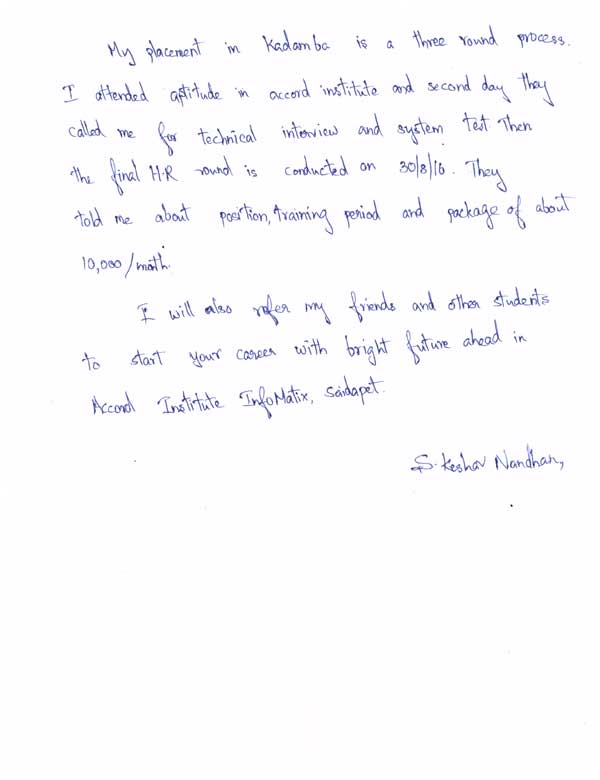 My placement in Kadamba is a three round process.
I attended aptitude in accord institute and second day they
called me for technical interview and system test Then
the final H.R round is conducted on 30/8/16. They
told me about position, training period and package of about
10,000/month.
I will also refer my friends and other students
to start your career with bright future ahead in
Accord Institute InfoMatix, Saidapet.
S. Keshav Nandhan,